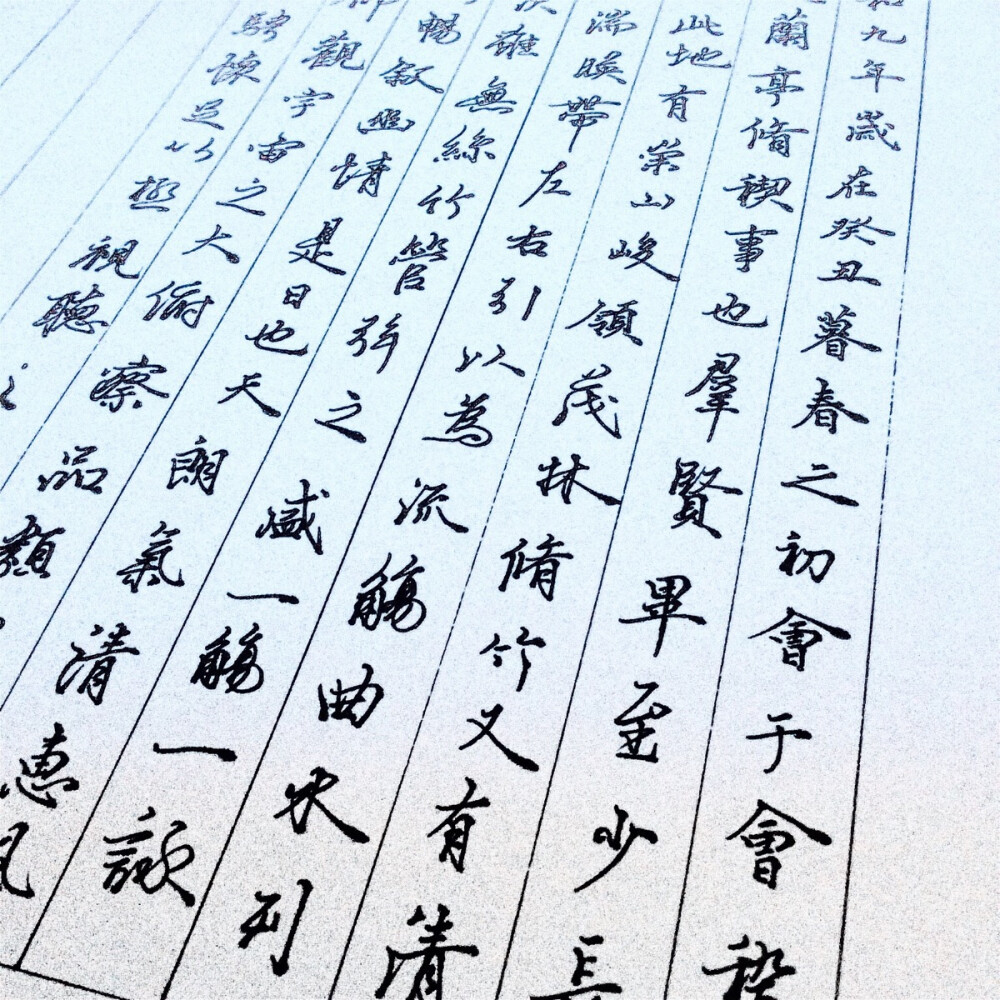 和九年歲在癸丑暮春之初會于會稽
蘭亭脩禊事也羣賢畢至少長
此地有崇山峻領茂林脩竹又有清
湍暎帶左右引以為流觴曲水列
雖無絲竹管弦之盛一觴一詠
暢叙幽情是日也天朗氣清惠風
觀宇宙之大俯察品類
騁懷足以極視聽之